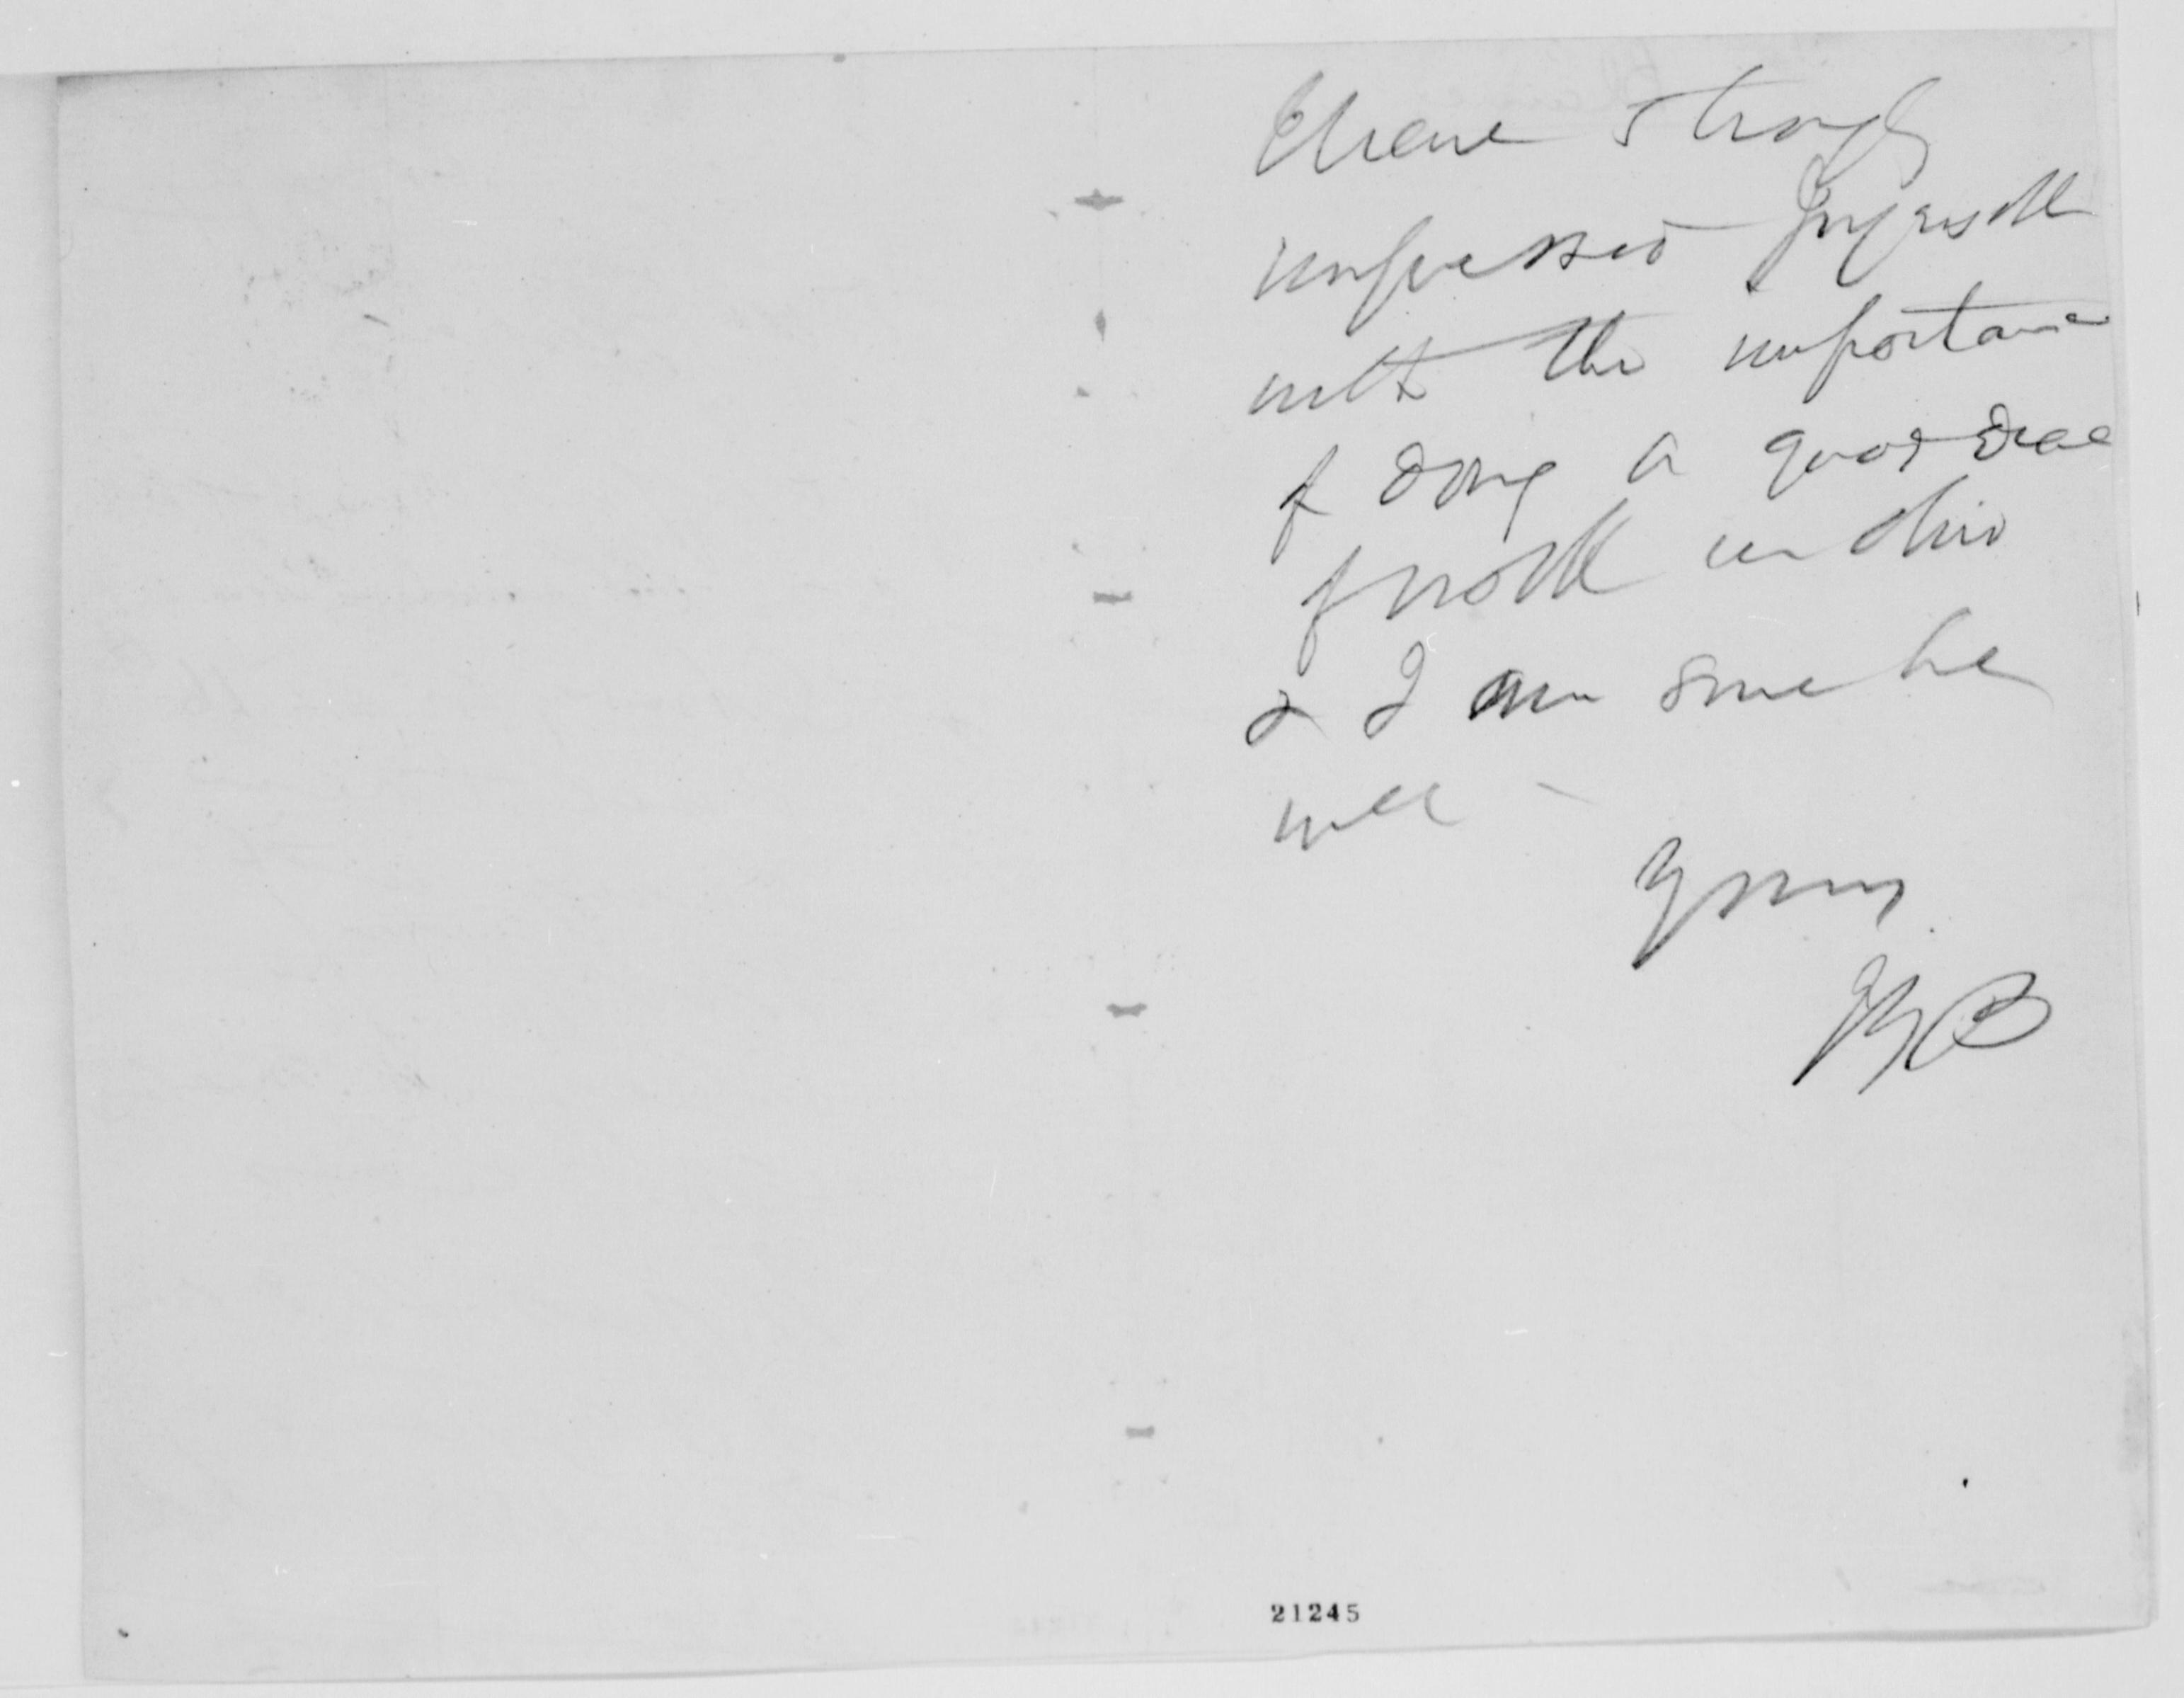 I have strongly
impressed Ingersoll
with the importance
of doing a good deal
of work in Ohio
& I am sure he
will –
Yours
JGB
21245